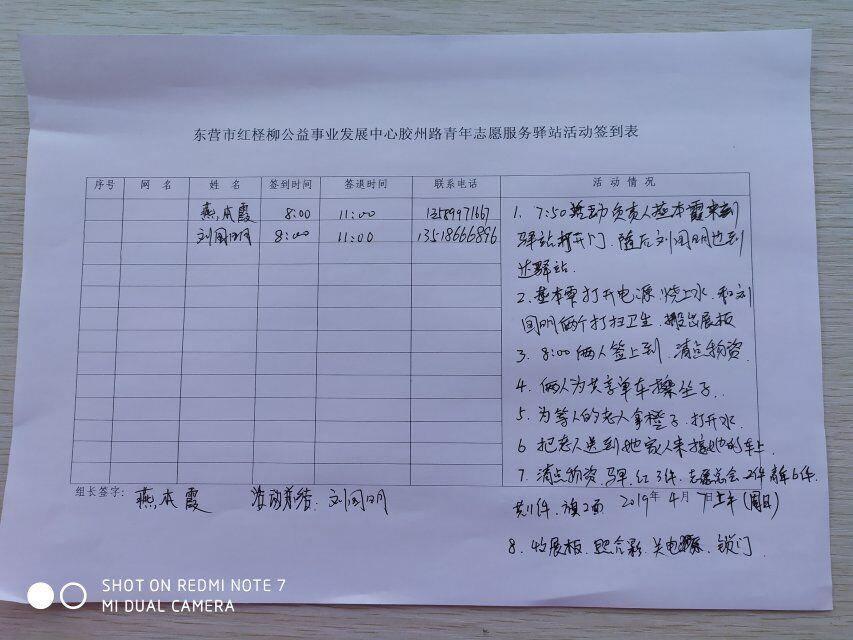 东营市红柽柳公益事业发展中心胶州路青年志愿服务驿站活动签到表
序号 网 名 姓 名 签到时间 签退时间 联系电话 活 动 情 况
燕本霞 8:00 11:00 13589971667
刘国明 8:00 11:00 13518666896
1. 7:50 活动负责人燕本霞来到
驿站打开门.随后刘国明也到
达驿站.
2.燕本霞打开电源.烧上水.和刘
国明俩个打扫卫生.搬出展板
3. 8:00 俩人签上到.清点物资.
4. 俩人为共享单车擦坐子.
5. 为等人的老人拿橙子.打开水.
6 把老人送到她家人来接她的车上.
7. 清点物资.马甲.红3件.志愿总会2件青年6件.
共11件.旗2面 2019年4月7日上午(周日)
8. 收展板.照合影.关电源.锁门.
组长签字: 燕本霞 活动总结:刘国明
SHOT ON REDMI NOTE 7
MI DUAL CAMERA